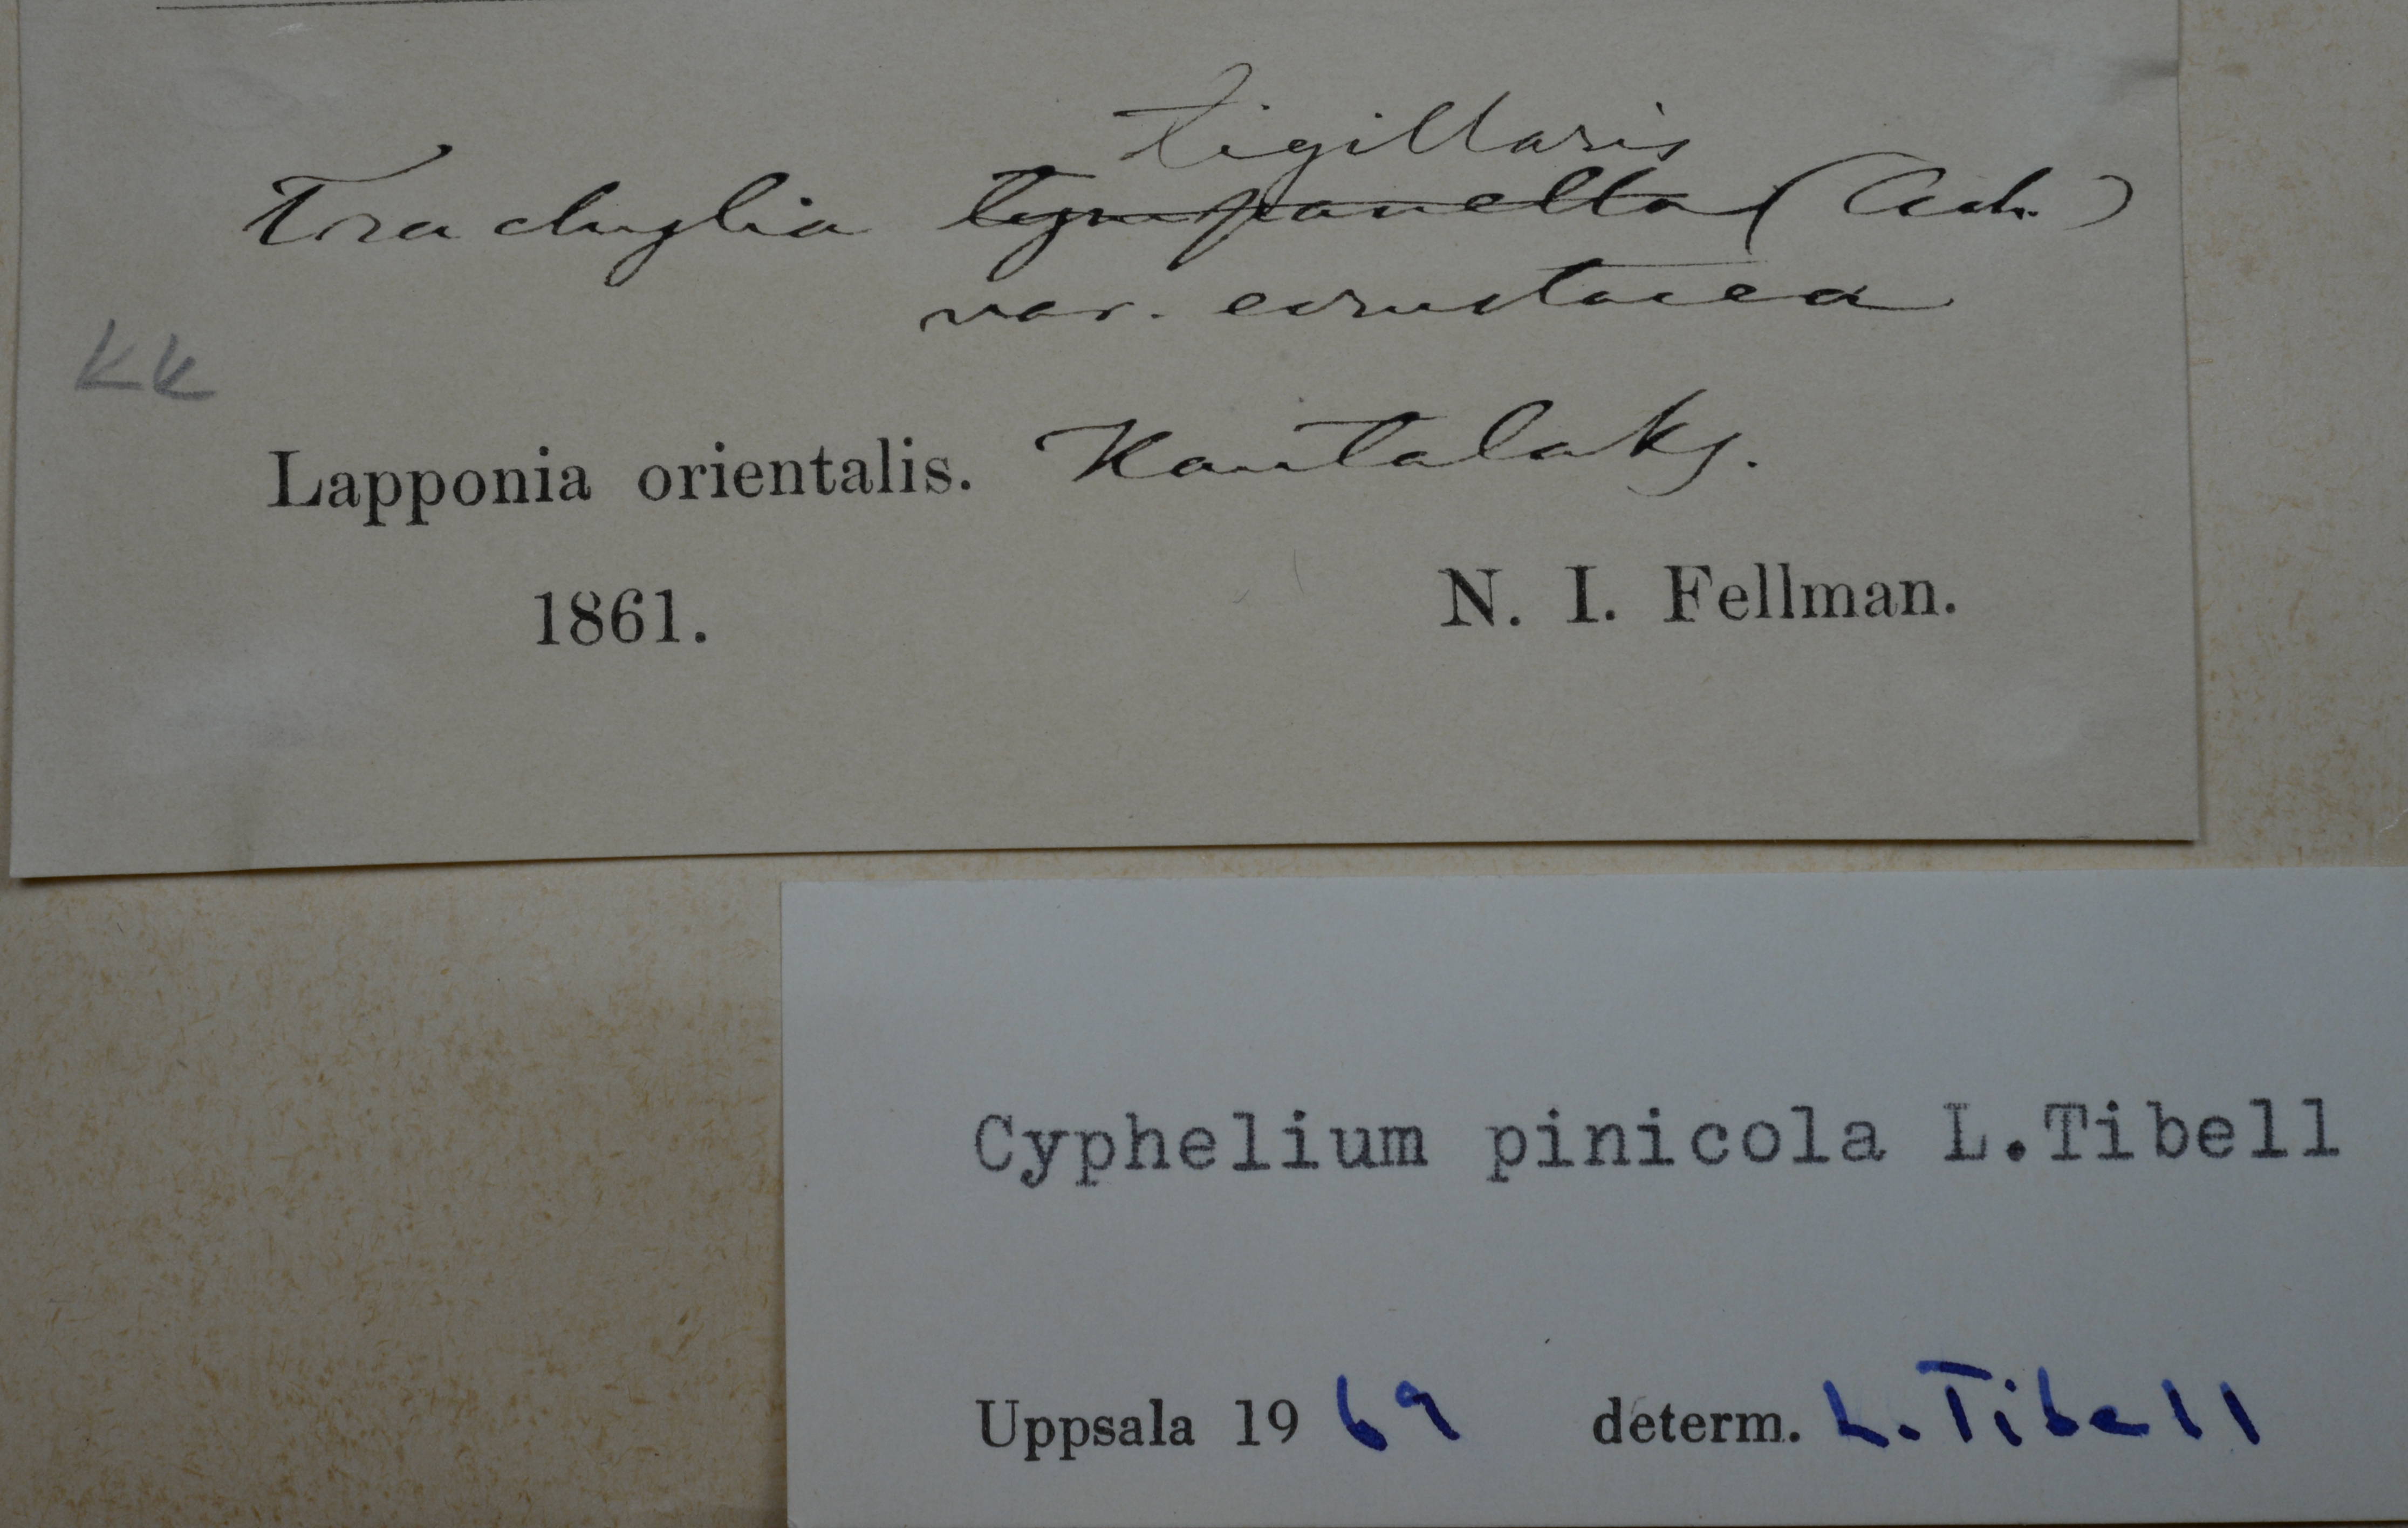 tigillaris
Trachylia tympanella (Ach.)
var. ecrustacea
KK
Lapponia orientalis. Kantalaks.
1861. N. I. Fellman.
Cyphelium pinicola L.Tibell
Uppsala 1969 determ. L. Tibell